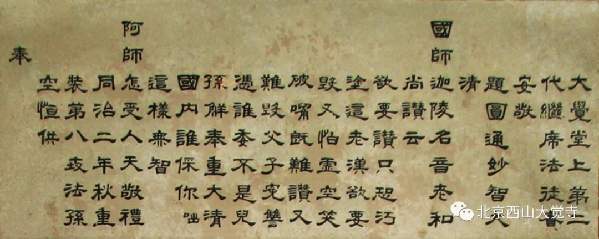 大覺堂上第二
代繼席法徒實
安敬
題圓通妙智大
清
國師迦陵名音老和
尚讚云
欲要讚只恐污
塗這老漢欲要
毀又怕虛空笑
破嘴既難讚又
難毀父子冤讐
憑誰委不是兒
孫解奉重大清
國內誰保你咄
這樣無智
阿師怎受人天敬禮
同治二年秋重
裝第八世法孫
空恒供
奉
北京西山大觉寺